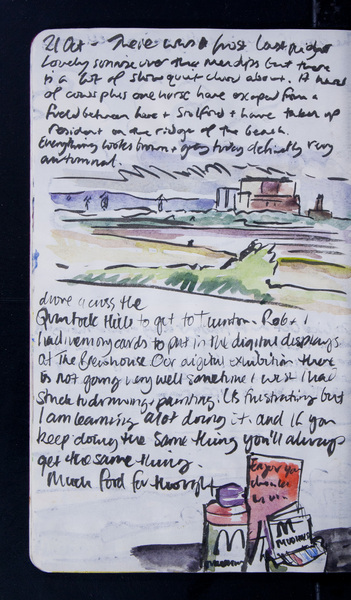 21 Oct - There was a frost last night
Lovely sunrise over the mendips but there
is a lot of showquit chow about. A
of cows plus one horse have escaped from a
field between here + Stolford + have taken up
resident on the ridge of the beach.
Everything looks brown + grey today definitely very
autumnal.
drove across the
Quantock Hills to get to Taunton. Rob + I
had memory cards to put in the digital displays
at The Brewhouse Our digital exhibition there
is not going very well sometime I wish I had
stuck to drawing + painting. It is frustrating but
I am learning a lot doing it. and if you
keep doing the same thing you'll always
get the same thing.
Much food for thought
Enjoy your
M
M